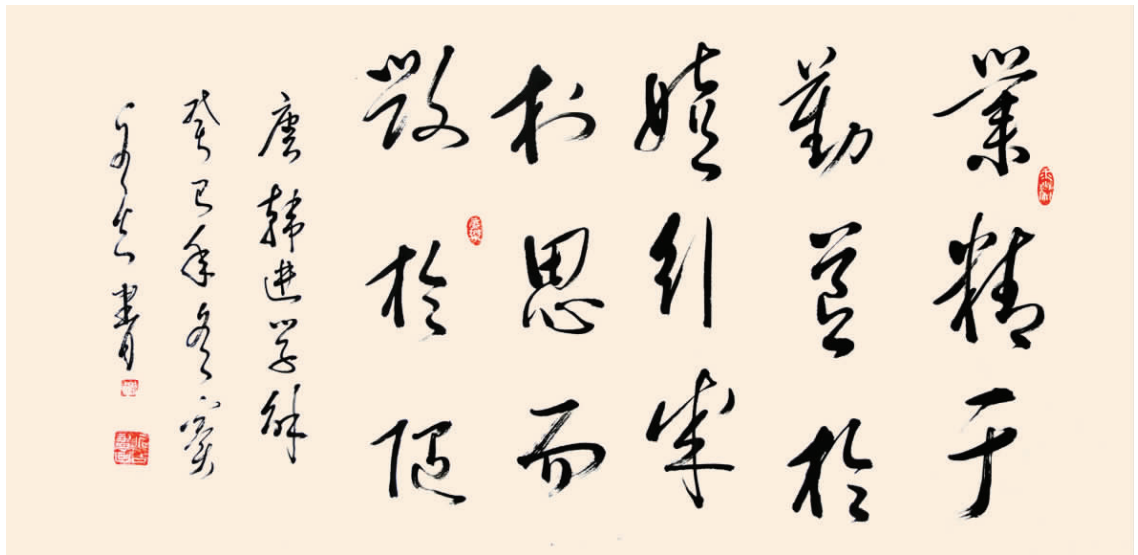 業精于
勤荒於
嬉行成
於思而
毁於随
唐韩進学解
癸巳年冬
書